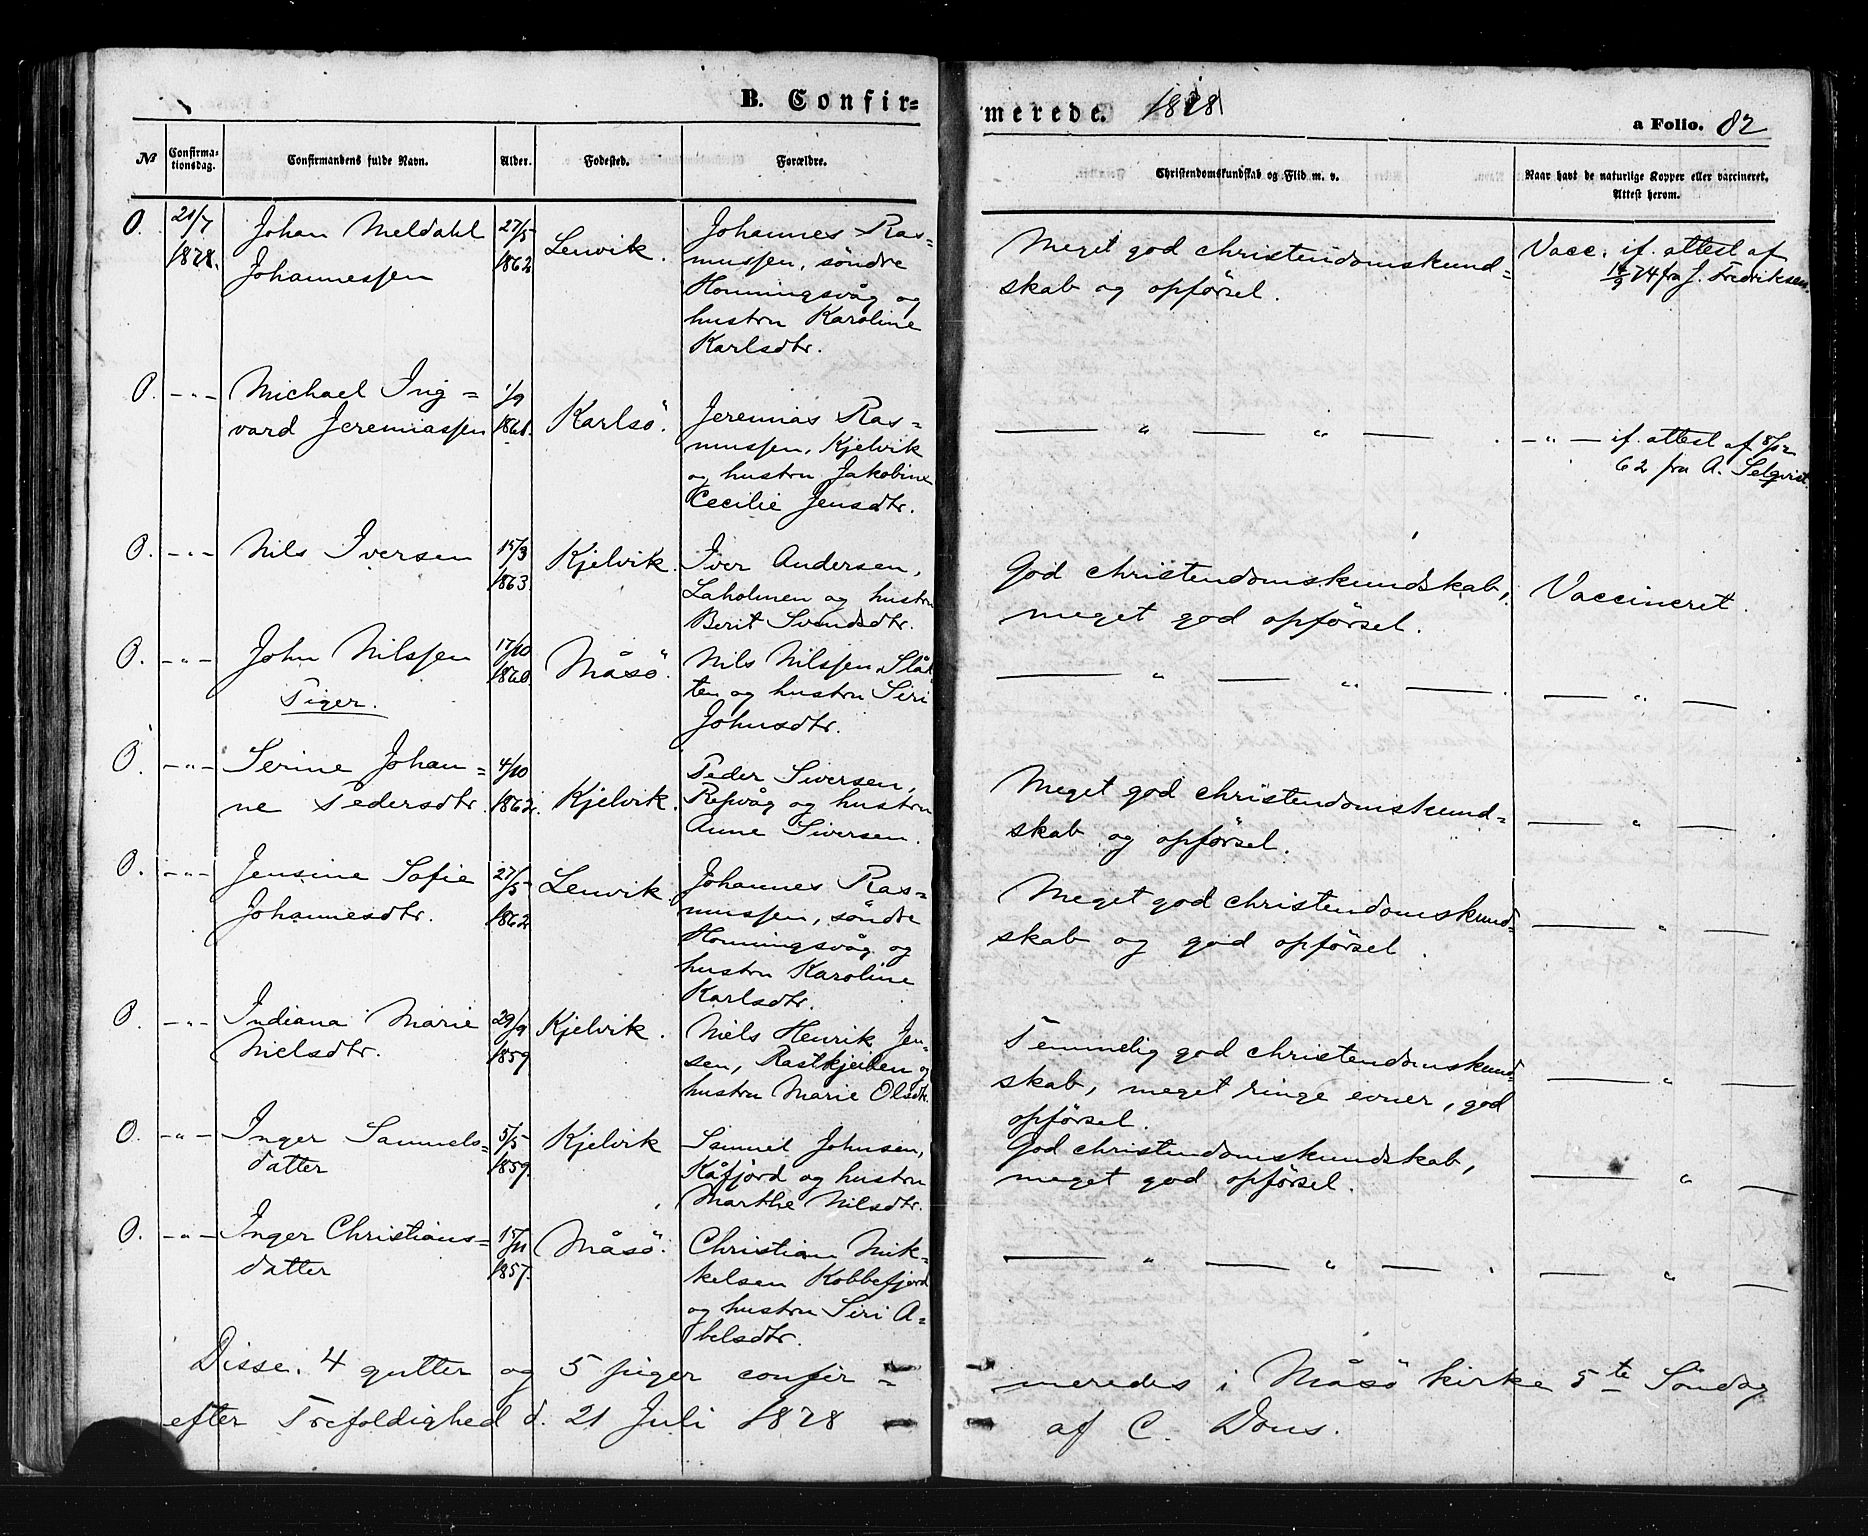 B. Confir=
merede. 1878
a Folio. 82
№
Confirma-
tionsdag.
Confirmandens fulde Navn.
Alder.
Fodested.
Forældre.
Christendomskundskab og Flid m. v.
Naar havt de naturlige Kopper eller vaccineret.
Attest herom.
O. 21/7 1878. Johan Meldahl 27/5 1862 Lenvik. Johannes Ras=
Johannessen mussen, söndre
Honningsvåg og
hustru Karoline
Karlsdtr.
Meget god christendomskund=
skab og opførsel.
Vacc. if. attest af
74 fra J. Fredriksen.
O. -"- Michael Ing= 1/9 Karlsö. Jeremias Ras=
vard Jeremiassen mussen, Kjelvik
og hustru Jakobine
Cecilie Jensdtr.
— " — " — .
—"— if. attest af 8/12
62 fra A. Selqvist.
O. -"- Nils Iversen 15/3 1863 Kjelvik. Iver Andersen,
Laholmen og hustru
Berit Svendsdtr.
God christendomskundskab,
meget god opførsel.
Vaccineret.
O. -"- John Nilssen 17/10 1860. Måsö. Nils Nilssen, Slåt
ten og hustru Siri
Johnsdtr.
— " — " — .
— " — .
Piger.
O. -"- Serine Johan= 4/10 1862. Kjelvik. Peder Siversen,
ne Pedersdtr. Repvåg og hustru
Anne Siversen.
Meget god christendomskund=
skab og opførsel.
— " — .
O. -"- Jensine Sofie 27/5 1862 Lenvik. Johannes Ras=
Johannesdtr. mussen, söndre
Honningsvåg og
hustru Karoline
Karlsdtr.
Meget god christendomskund=
skab og god opførsel.
— " — .
O. -"- Indiana Marie 29/9 1859 Kjelvik. Niels Henrik Jen=
Nielsdtr. sen, og
hustru Marie Olsdtr.
Temmelig god christendomskund=
skab, meget ringe evner, god
opførsel.
— " —
O. -"- Inger Samuels= 5/5 1859. Kjelvik Samuel Johnsen,
datter Kåfjord og hustru
Marthe Nilsdtr.
God christendomskundskab,
meget god opførsel.
— " —
O. -"- Inger Christians= 15/11 1857. Måsö. Christian Mik=
datter kelsen Kobbefjord
og hustru Siri A=
belsdtr.
— " — " — .
— " —
Disse 4 gutter og 5 piger confir=
meredes i Måsö kirke 5te Söndag
efter Trefoldighed d. 21 Juli 1878
af C. Dons.